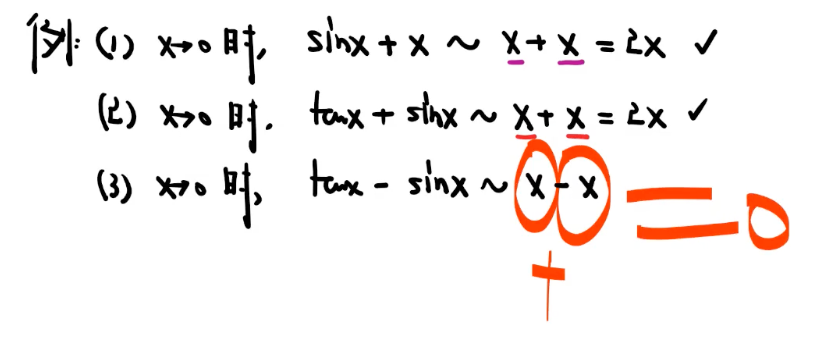 例: (1) x→0 时, sinx + x ~ x + x = 2x ✓
(2) x→0 时, tanx + sinx ~ x + x = 2x ✓
(3) x→0 时, tanx - sinx ~ x - x = 0
+